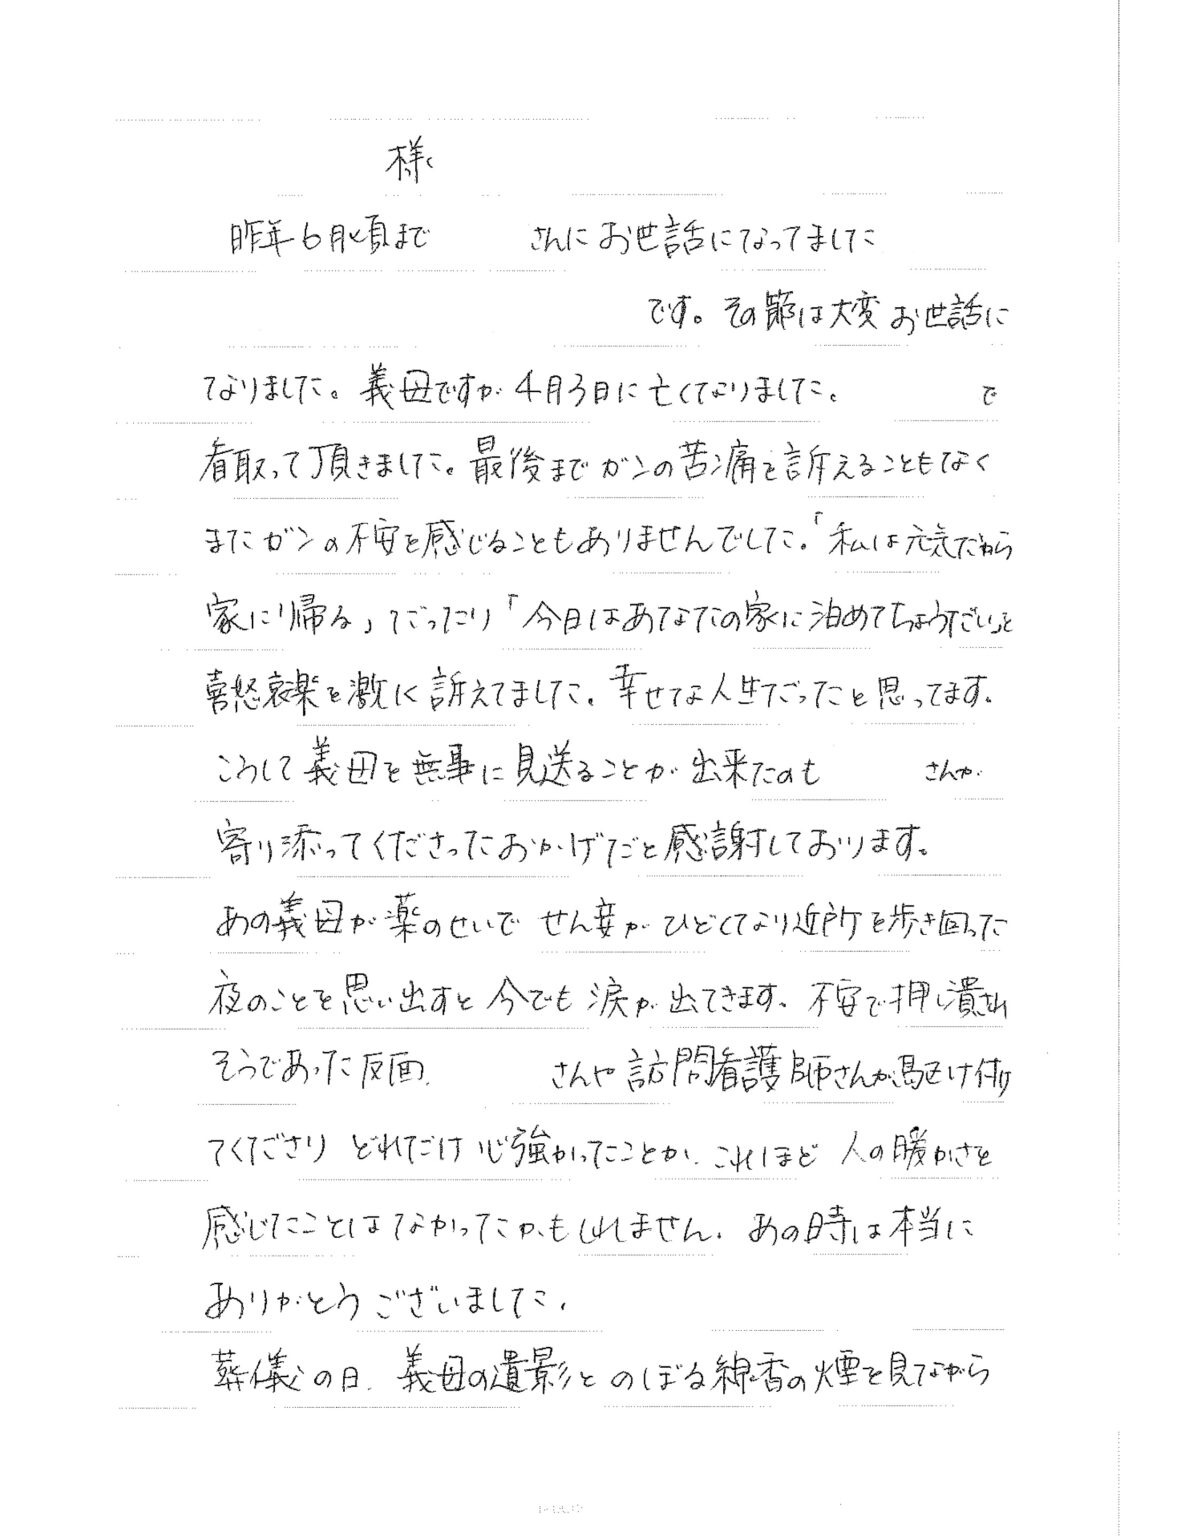 様
昨年6月頃まで さんにお世話になってました
です。その節は大変お世話に
なりました。義母ですが4月3日に亡くなりました。 で
看取って頂きました。最後までガンの苦痛を訴えることもなく
またガンの不安を感じることもありませんでした。「私は元気だから
家に帰る」だったり「今日はあなたの家に泊めてちょうだい」と
喜怒哀楽を激しく訴えてました。幸せな人生だったと思ってます。
こうして義母を無事に見送ることが出来たのも さんが
寄り添ってくださったおかげだと感謝しております。
あの義母が薬のせいでせん妄がひどくなり近所を歩き回った
夜のことを思い出すと今でも涙が出てきます。不安で押し潰され
そうであった反面、 さんや訪問看護師さんが駆け付け
てくださり どれだけ心強かったことか、これほど人の暖かさを
感じたことはなかったかもしれません。あの時は本当に
ありがとうございました。
葬儀の日、義母の遺影とのぼる線香の煙を見ながら